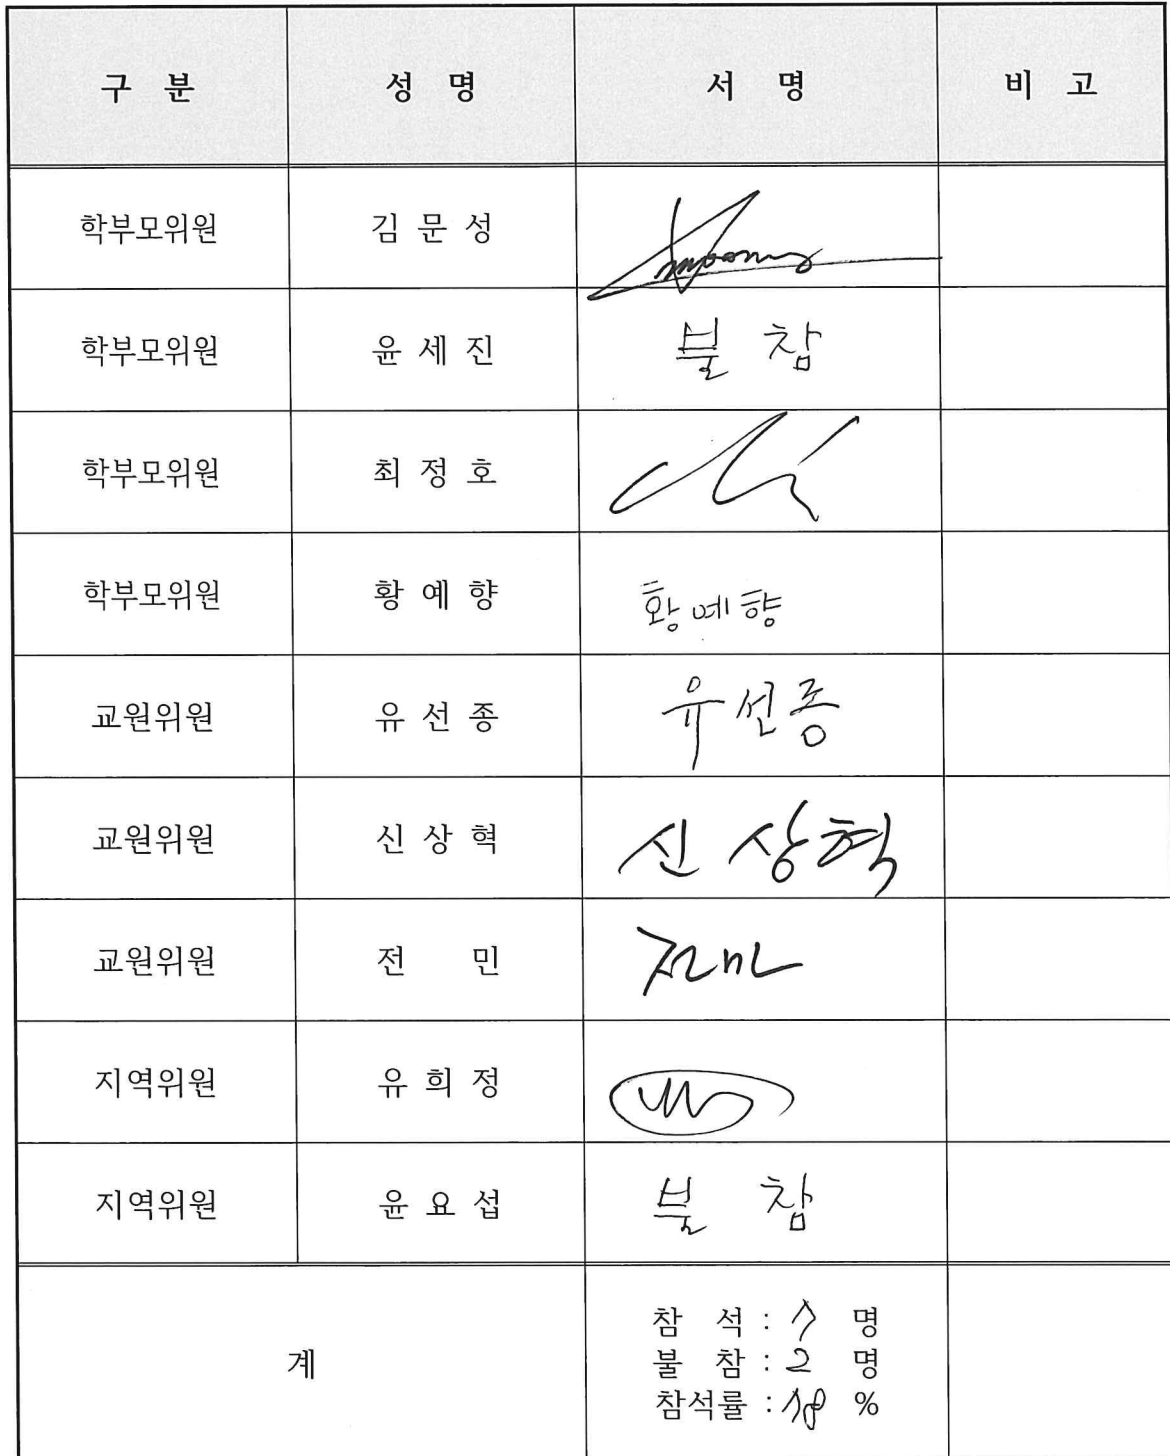 구 분 성 명 서 명 비 고
학부모위원 김 문 성
학부모위원 윤 세 진 불 참
학부모위원 최 정 호
학부모위원 황 예 향 황예향
교원위원 유 선 종 유선종
교원위원 신 상 혁 신 상혁
교원위원 전 민 전민
지역위원 유 희 정
지역위원 윤 요 섭 불 참
계
참 석 : 7 명
불 참 : 2 명
참석률 : 78 %